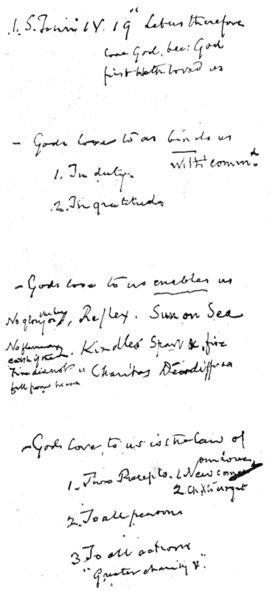 1. S. John IV. 19 "Let us therefore
love God, bec: God
first hath loved us
- Gods love to us binds us
1. In duty. with comm.d
2. In gratitude
- Gods love to us enables us
Reflex. Sun on Sea
Kindles Spark & fire
Fire did not "Charitas Dei diffusa
fell from heaven
- Gods love to us is the law of
our love
1. Two Precepts. 1. New comm
2.
2. To all persons
3 To all actions
"Greater charity &."